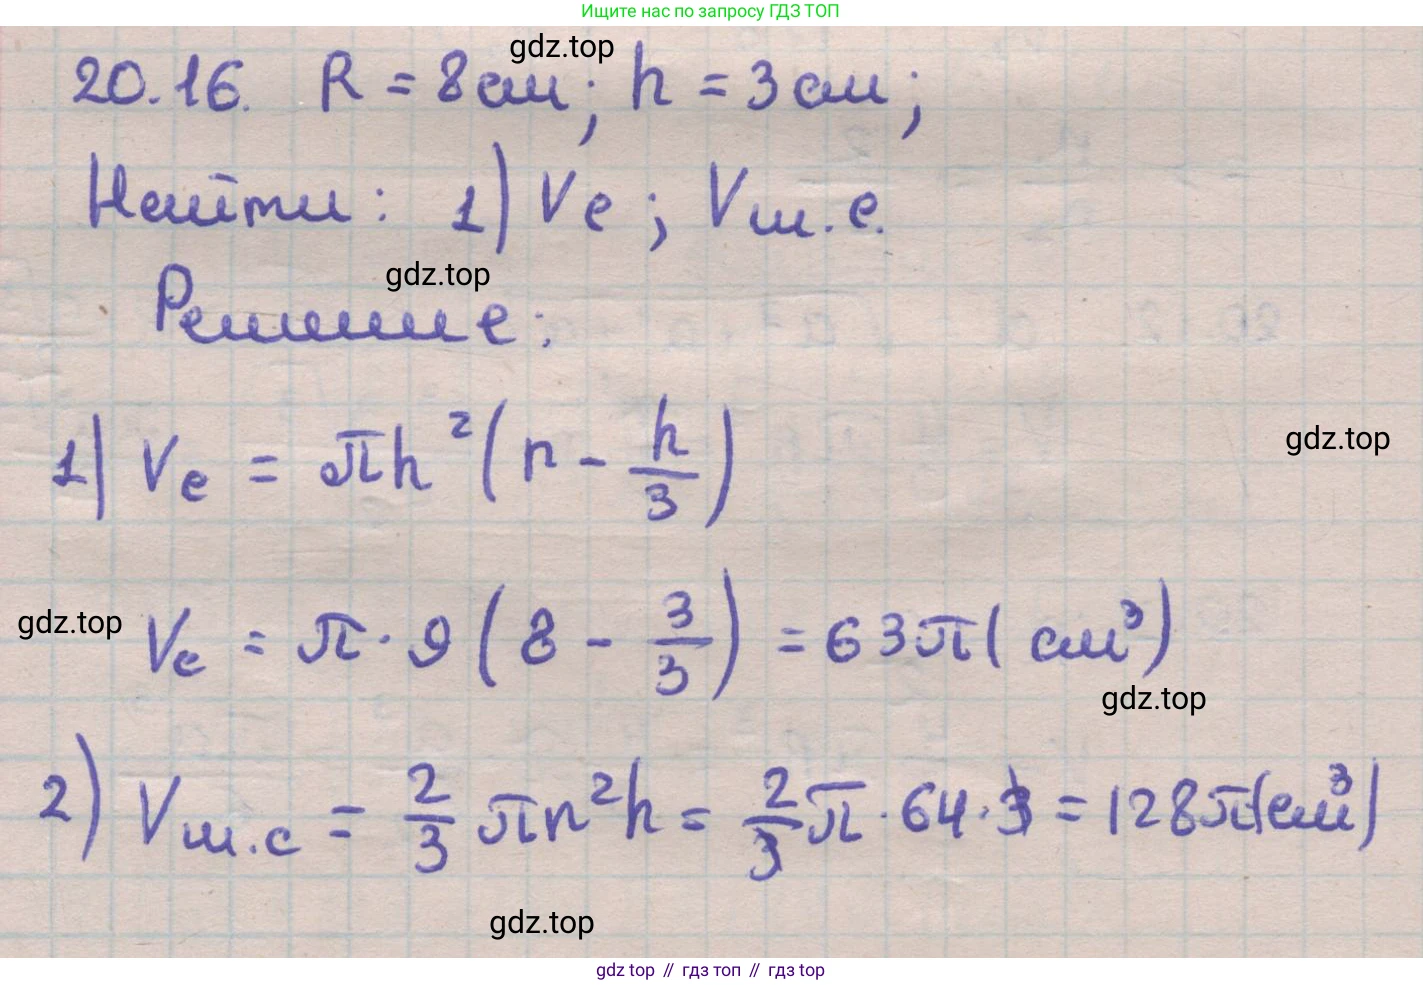 Ищите нас по запросу ГДЗ ТОП
gdz.top
20.16. R = 8см; h = 3см;
Найти: 1) Vс; Vш.с.
gdz.top
Решение:
gdz.top
1) Vс = πh²(r - h/3)
gdz.top
Vс = π·9(8 - 3/3) = 63π(см³)
gdz.top
2) Vш.с = 2/3 πr²h = 2/3 π·64·3 = 128π(см³)
gdz.top
gdz top // гдз топ // gdz top